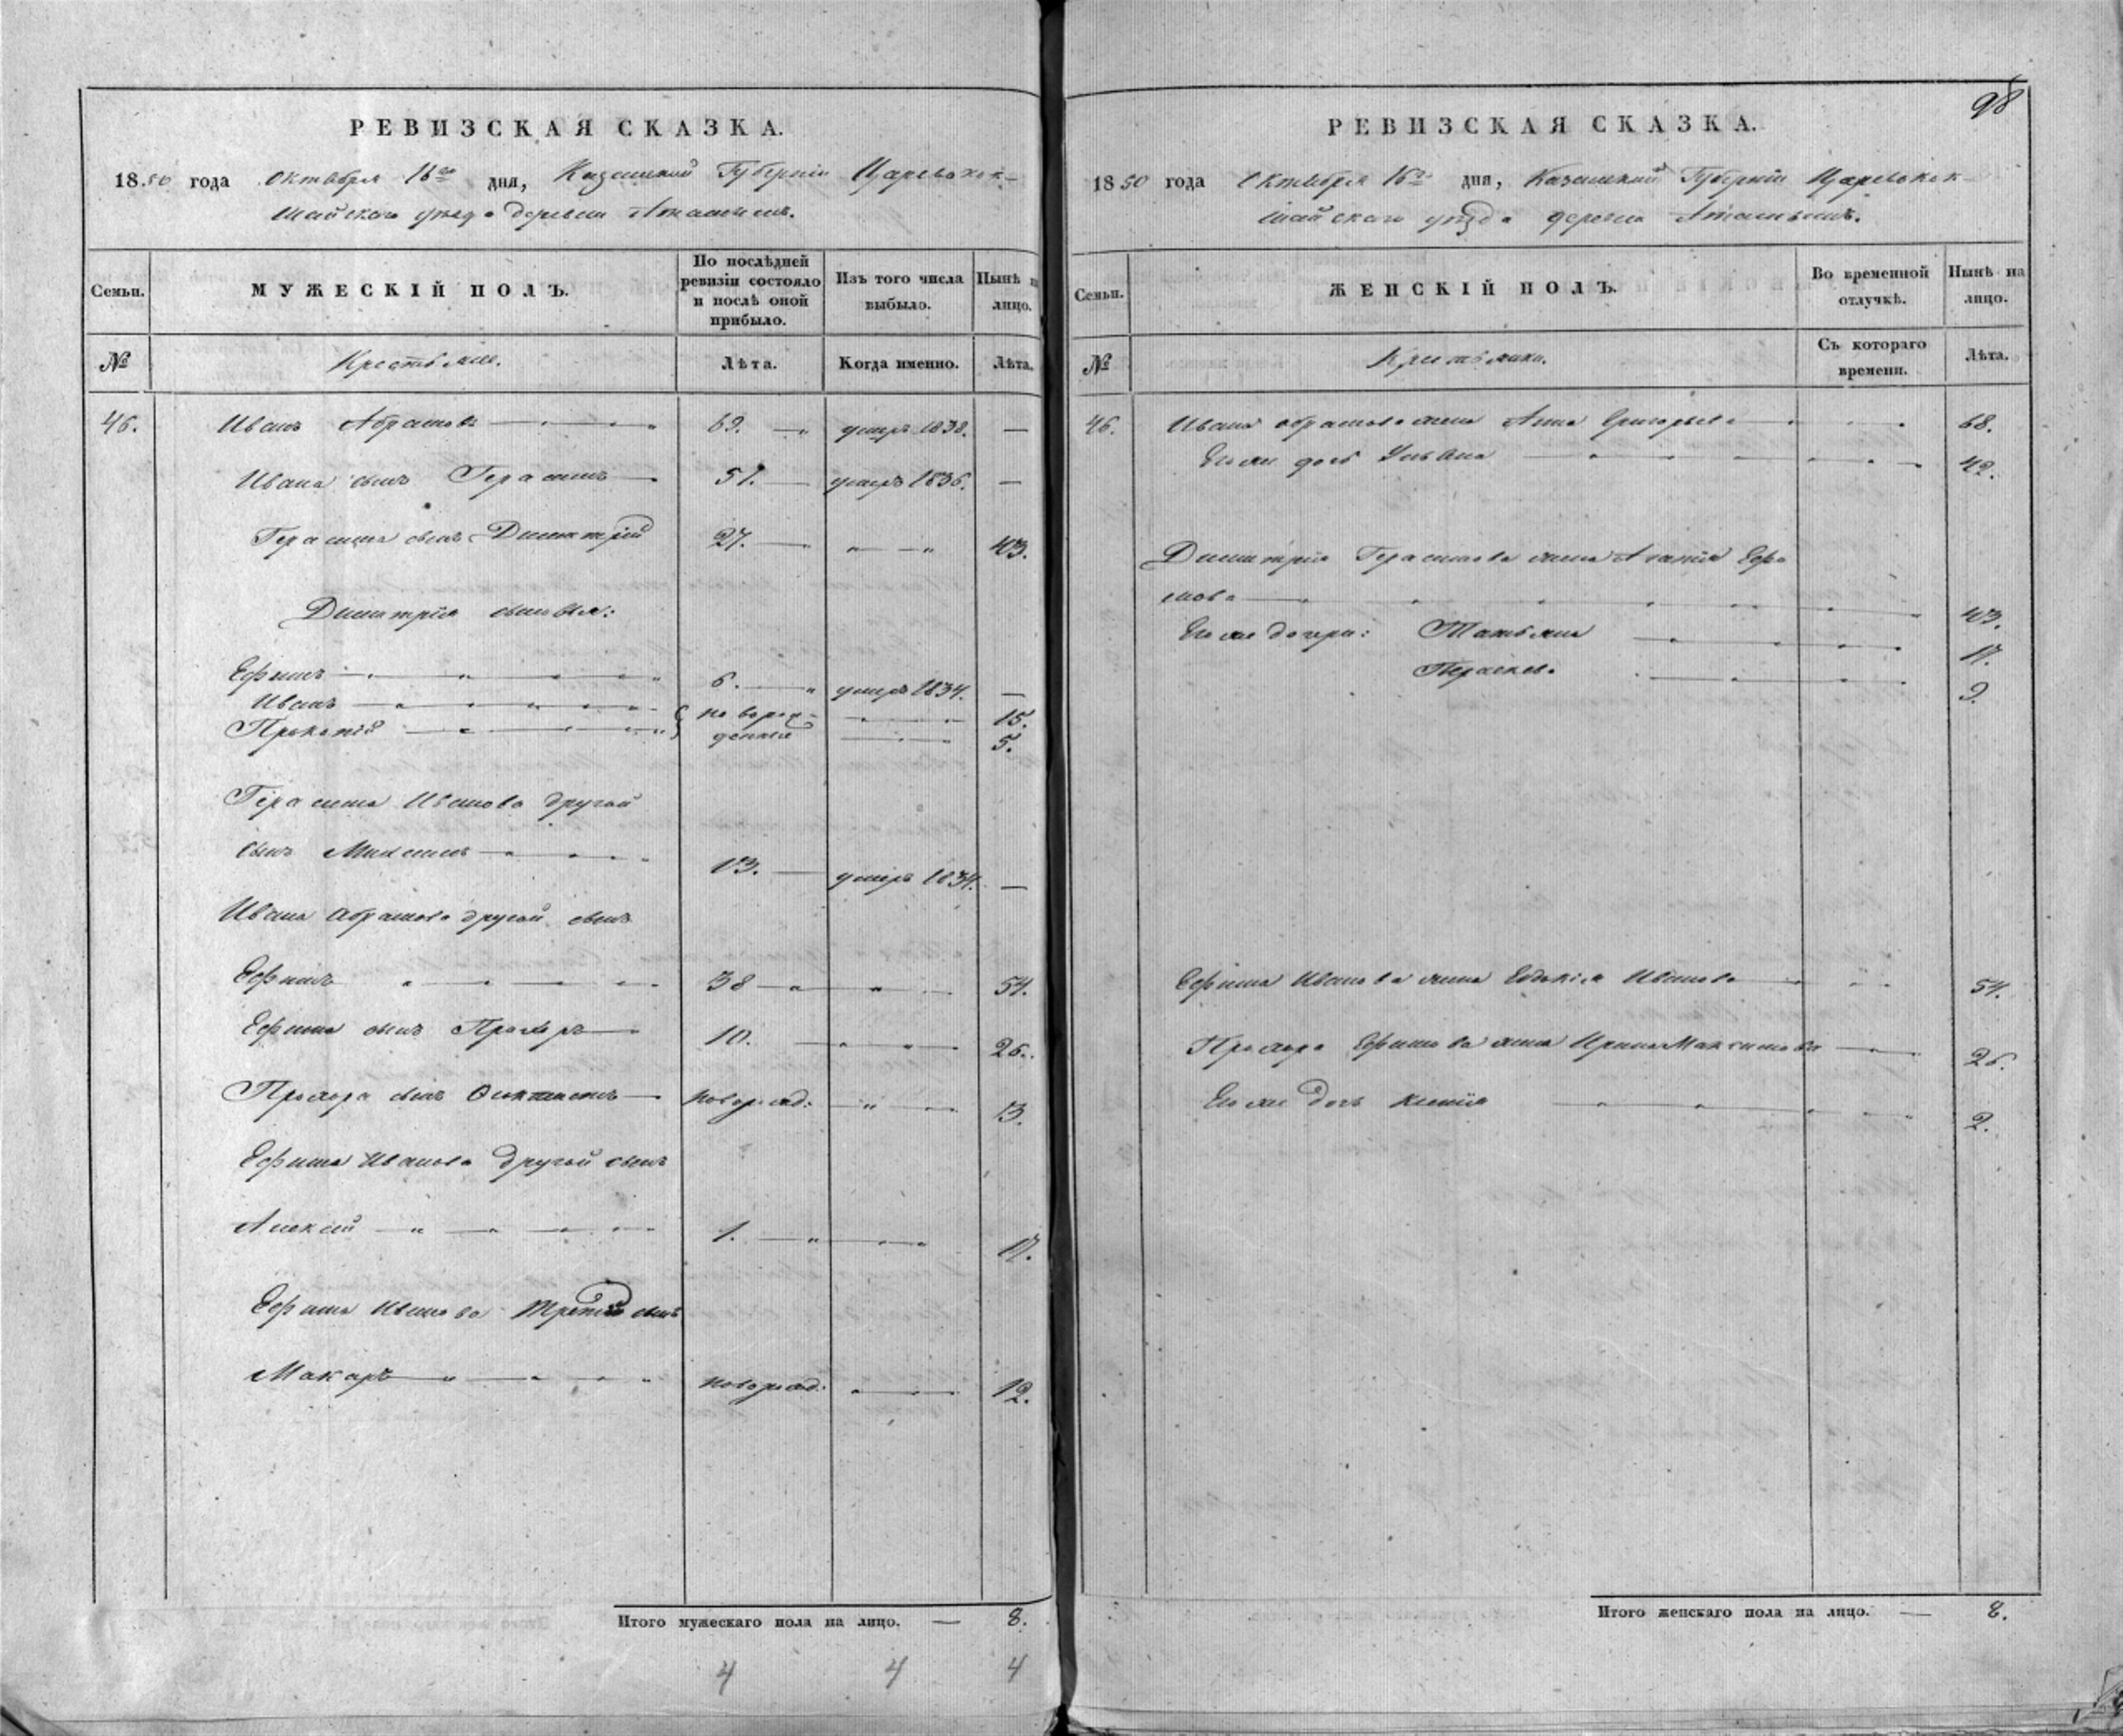 РЕВИЗСКАЯ СКАЗКА.
1850 года Октября 16го дня, Казанской Губернiи Царевокок-
шайскаго уѣзда деревни
Семьи.
МУЖЕСКІЙ ПОЛЪ.
По послѣдней ревизіи состояло и послѣ оной прибыло.
Изъ того числа выбыло.
Нынѣ на лицо.
№
Крестьяне.
Лѣта.
Когда именно.
Лѣта.
46. Иванъ Абрамовъ 69. умеръ 1838. —
Ивана сынъ Герасимъ 51. умеръ 1836. —
Герасима сынъ Димитрій 27. 43.
Димитрія сыновья:
Ефимъ 6. умеръ 1834. —
Иванъ новорож- 15.
Прокопій денные 5.
Герасима Иванова другой
сынъ Максимъ 13. умеръ 1834. —
Ивана Абрамова другой сынъ
Ефимъ 38 54.
Ефима сынъ Прохоръ 10. 26.
Прохора сынъ новорожд: 3.
Ефима Иванова другой сынъ
Алексѣй 1. 17.
Ефима Иванова третій сынъ
Макаръ новорожд: 12.
Итого мужескаго пола на лицо. — 8.
4 4 4
98
РЕВИЗСКАЯ СКАЗКА.
1850 года Октября 16го дня, Казанской Губернiи Царевокок-
шайскаго уѣзда деревни
Семьи.
ЖЕНСКІЙ ПОЛЪ.
Во временной отлучкѣ.
Нынѣ на лицо.
№
Крестьянки.
Съ котораго времени.
Лѣта.
46. Ивана Абрамова жена Анна Григорьева 68.
Его же дочь Ульяна 42.
Димитрія Герасимова жена Ефре
мова 43.
Его же дочери: Татьяна 17.
Параскева 9.
Ефима Иванова жена Евдокія Иванова 54.
Прохора Ефимова жена Ирина Максимова 26.
Его же дочь Ксенія 2.
Итого женскаго пола на лицо. — 8.